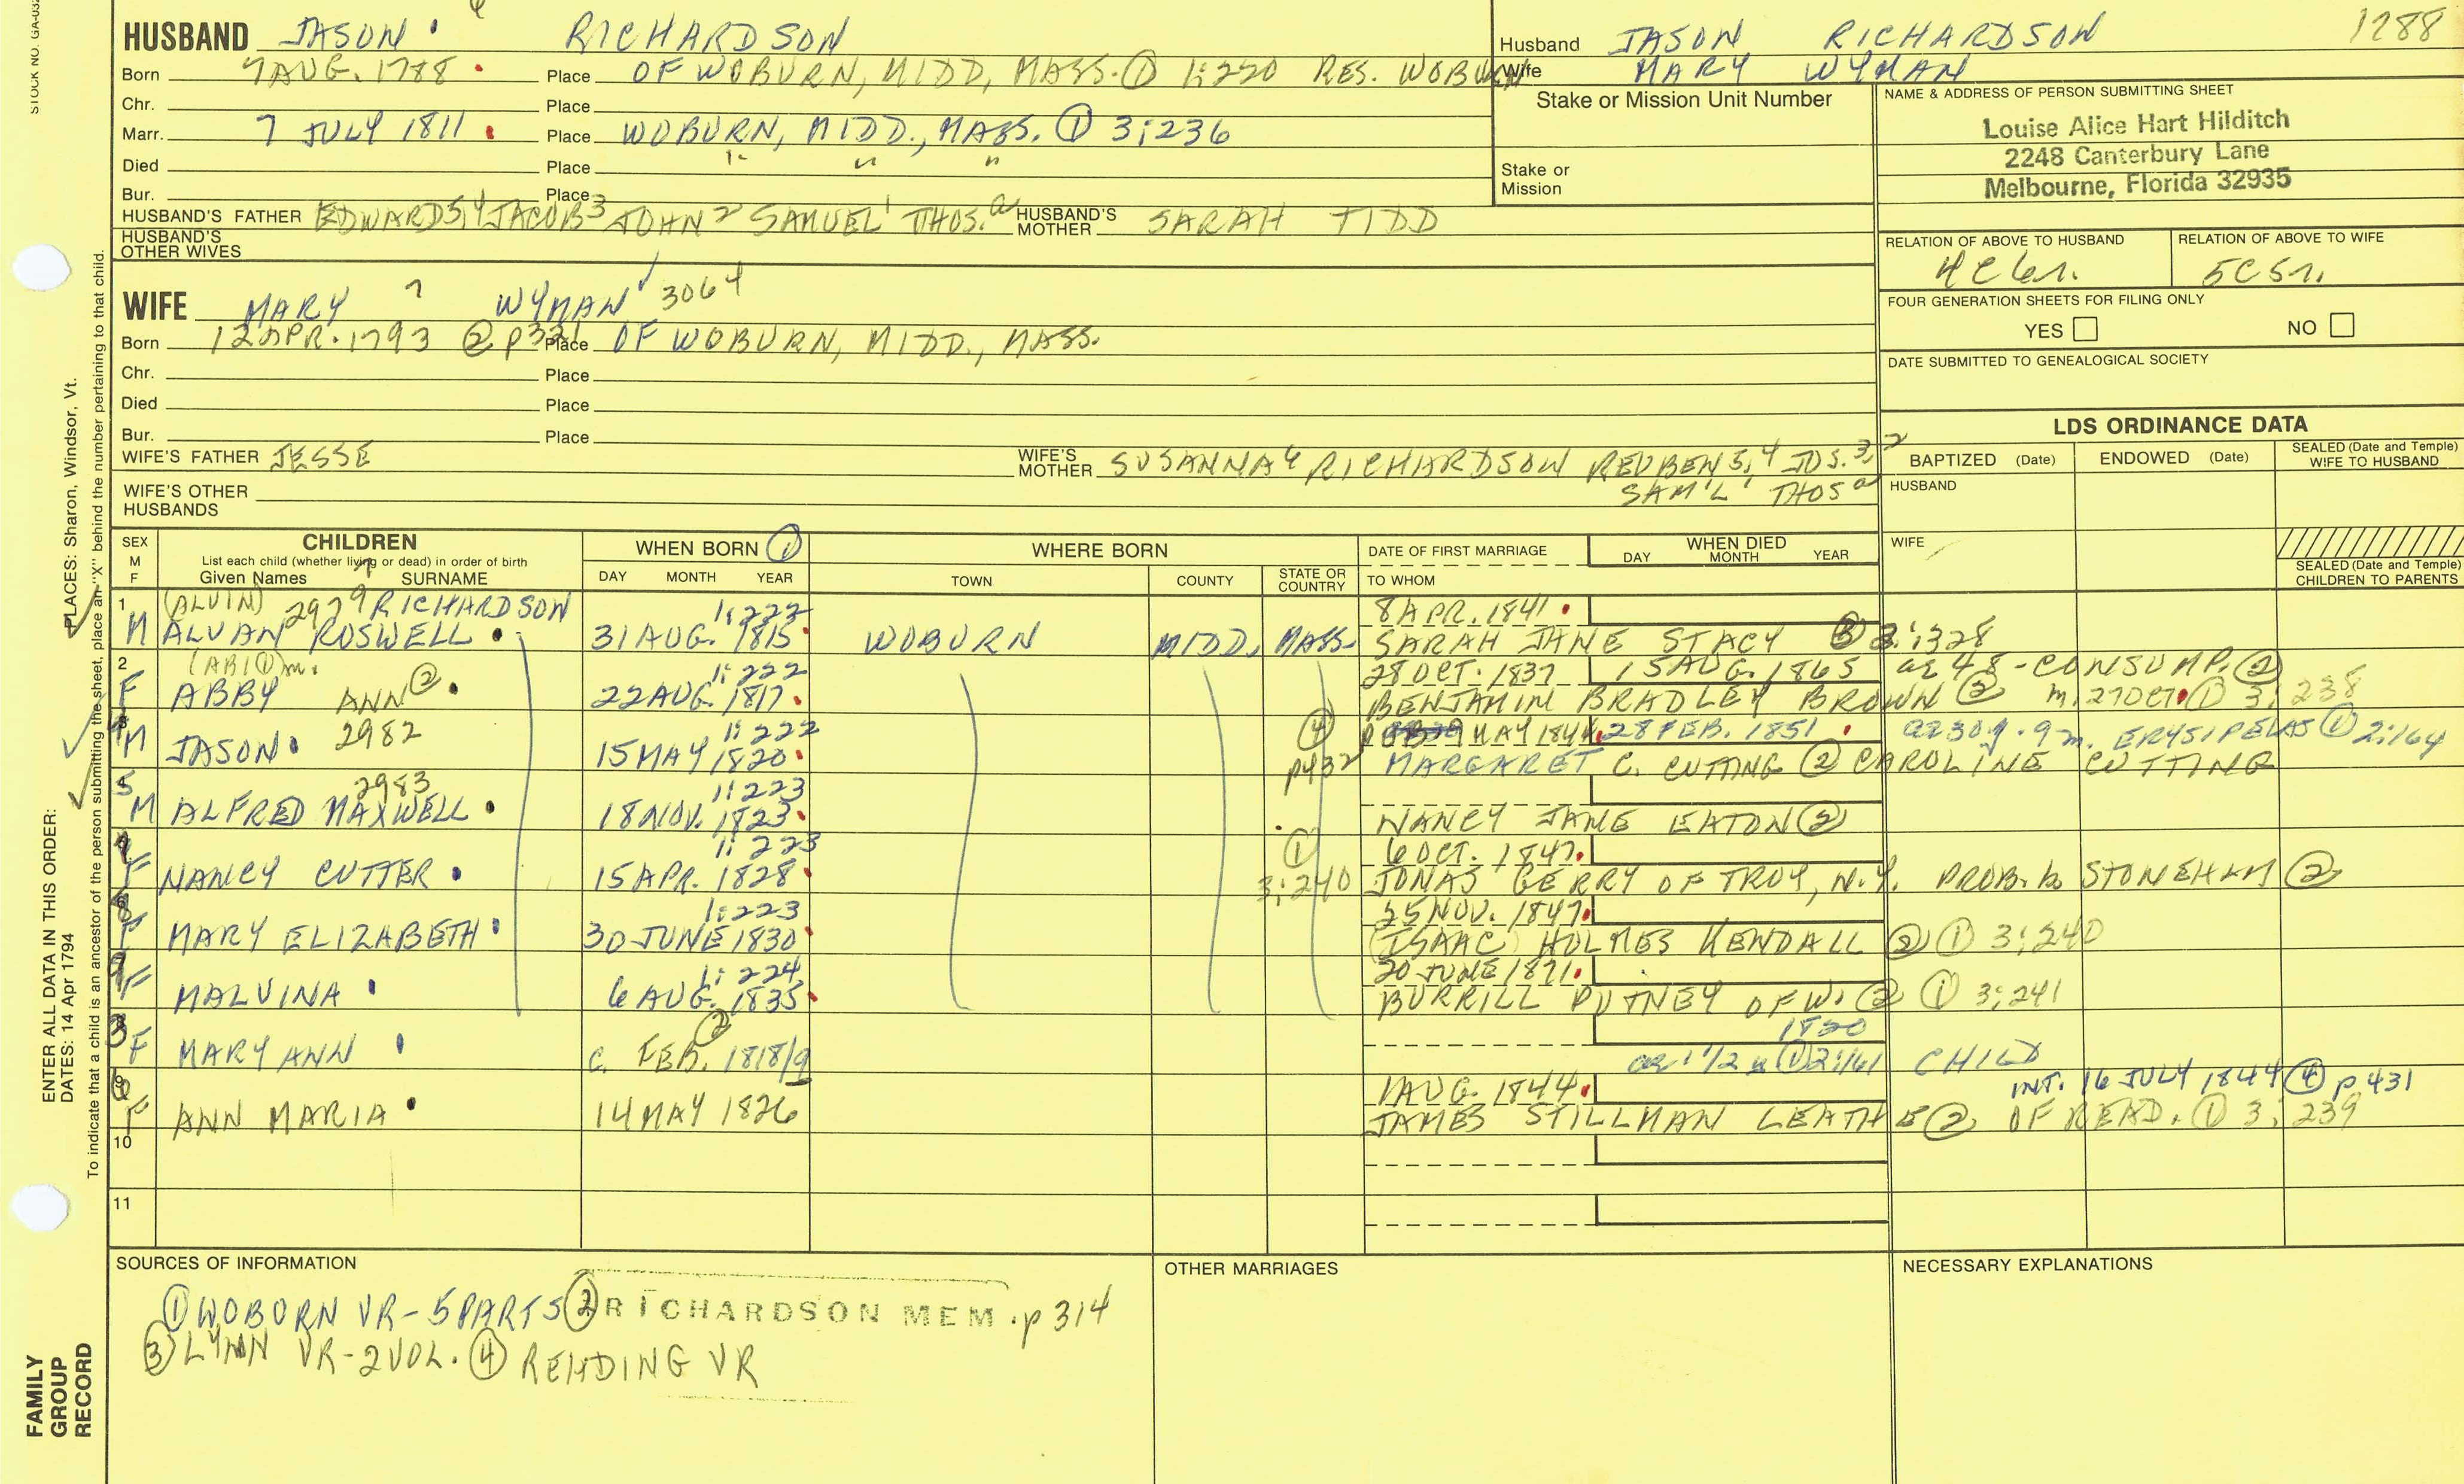 STOCK NO. GA-032
HUSBAND JASON RICHARDSON
Born 7 AUG. 1788 Place OF WOBURN, MIDD, MASS. ① 1:220 RES. WOBURN
Chr. Place
Marr. 7 JULY 1811 Place WOBURN, MIDD., MASS. ① 3:236
Died Place " " "
Bur. Place
HUSBAND'S FATHER EDWARD5,4 JACOB3 JOHN2 SAMUEL1 THOS.a HUSBAND'S MOTHER SARAH TIDD
HUSBAND'S OTHER WIVES
Husband JASON RICHARDSON 1288
Wife MARY WYMAN
Stake or Mission Unit Number
Stake or Mission
NAME & ADDRESS OF PERSON SUBMITTING SHEET
Louise Alice Hart Hilditch
2248 Canterbury Lane
Melbourne, Florida 32935
RELATION OF ABOVE TO HUSBAND RELATION OF ABOVE TO WIFE
4C6r. 5C5r.
FOUR GENERATION SHEETS FOR FILING ONLY
YES NO
DATE SUBMITTED TO GENEALOGICAL SOCIETY
WIFE MARY WYMAN 3064
Born 12 APR. 1793 ② p321 Place OF WOBURN, MIDD., MASS.
Chr. Place
Died Place
Bur. Place
WIFE'S FATHER JESSE WIFE'S MOTHER SUSANNA6 RICHARDSON REUBEN5,4 JOS.3,2
SAM'L1 THOSa
WIFE'S OTHER HUSBANDS
LDS ORDINANCE DATA
BAPTIZED (Date) ENDOWED (Date) SEALED (Date and Temple) WIFE TO HUSBAND
HUSBAND
WIFE
SEALED (Date and Temple) CHILDREN TO PARENTS
SEX M F CHILDREN WHEN BORN ① WHERE BORN DATE OF FIRST MARRIAGE WHEN DIED
List each child (whether living or dead) in order of birth
Given Names SURNAME DAY MONTH YEAR TOWN COUNTY STATE OR COUNTRY TO WHOM DAY MONTH YEAR
1 (ALVIN) 2979 RICHARDSON 1:222 8 APR. 1841
M ALVAN ROSWELL 31 AUG. 1815 WOBURN MIDD. MASS. SARAH JANE STACY ③ 2:328
2 (ABI ①)m. 1:222 28 OCT. 1837 15 AUG. 1865 ae 48 - CONSUMP. ②
F ABBY ANN ② 22 AUG. 1817 BENJAMIN BRADLEY BROWN ② m. 27 OCT ① 3:238
4 M JASON 2982 1:222 15 MAY 1820 ④ p432 MAY 1844 28 FEB. 1851 ae 30y. 9m. ERYSIPELAS ① 2:164
MARGARET C. CUTTING ② CAROLINE CUTTING
5 2983 1:223
M ALFRED MAXWELL 18 NOV. 1823 NANCY JANE EATON ②
7 1:223 ① 6 OCT. 1847
F NANCY CUTTER 15 APR. 1828 3:240 JONAS GERRY OF TROY, N.Y. PROB. b. STONEHAM ②
8 1:223 25 NOV. 1847
F MARY ELIZABETH 30 JUNE 1830 (ISAAC) HOLMES KENDALL ② ① 3:240
9 1:224 20 JUNE 1871
F MALVINA 6 AUG. 1835 BURRILL PUTNEY OF W. ② ① 3:241
3 ② 1820
F MARY ANN C. FEB. 1818/9 ae 1 1/2 y ① 2:161 CHILD
6 1 AUG. 1844 INT. 16 JULY 1844 ④ p431
F ANN MARIA 14 MAY 1826 JAMES STILLMAN LEATHE ② OF READ. ① 3:239
10
11
SOURCES OF INFORMATION OTHER MARRIAGES NECESSARY EXPLANATIONS
① WOBURN VR - 5 PARTS ② RICHARDSON MEM. p 314
③ LYNN VR - 2 VOL. ④ READING VR
ENTER ALL DATA IN THIS ORDER:
DATES: 14 Apr 1794
PLACES: Sharon, Windsor, Vt.
To indicate that a child is an ancestor of the person submitting the sheet, place an "X" behind the number pertaining to that child.
FAMILY
GROUP
RECORD